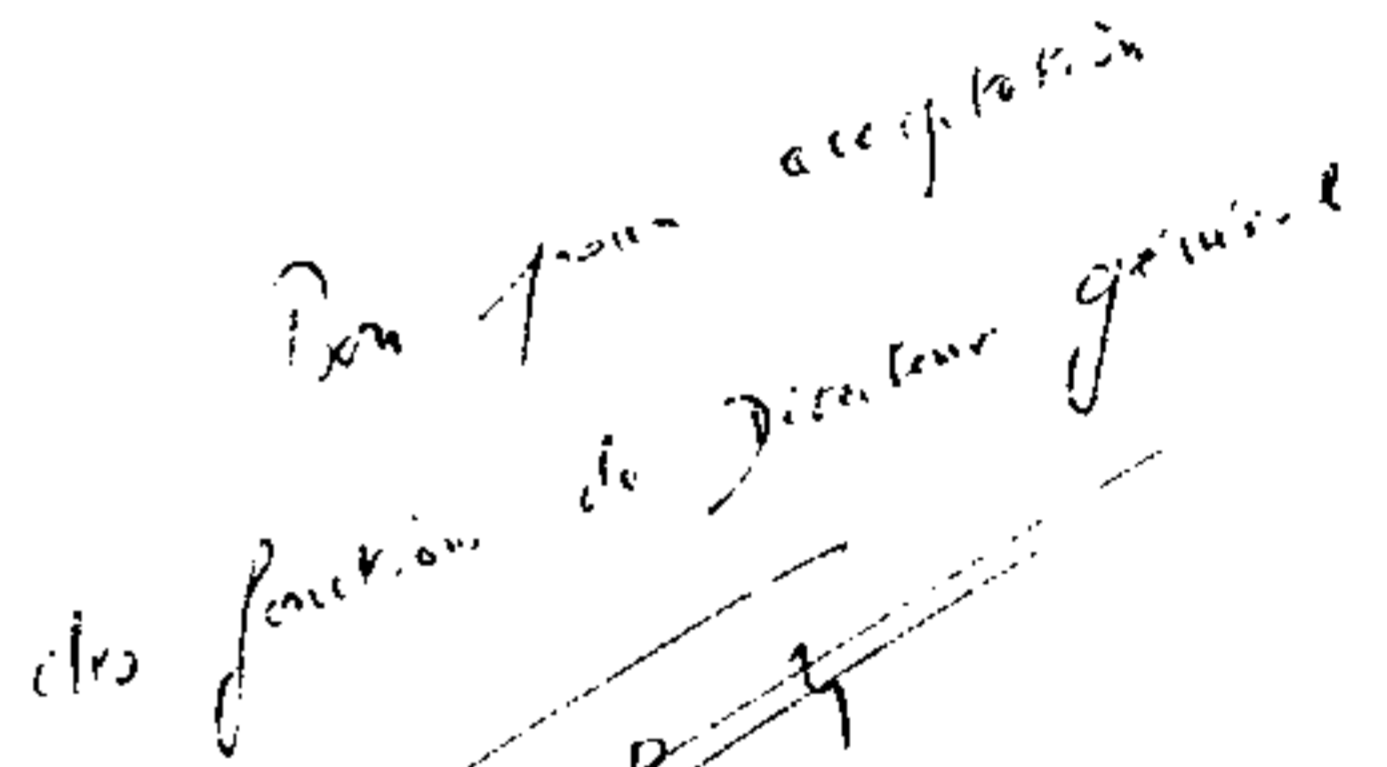 Bon pour acceptation
des fonctions de Directeur général